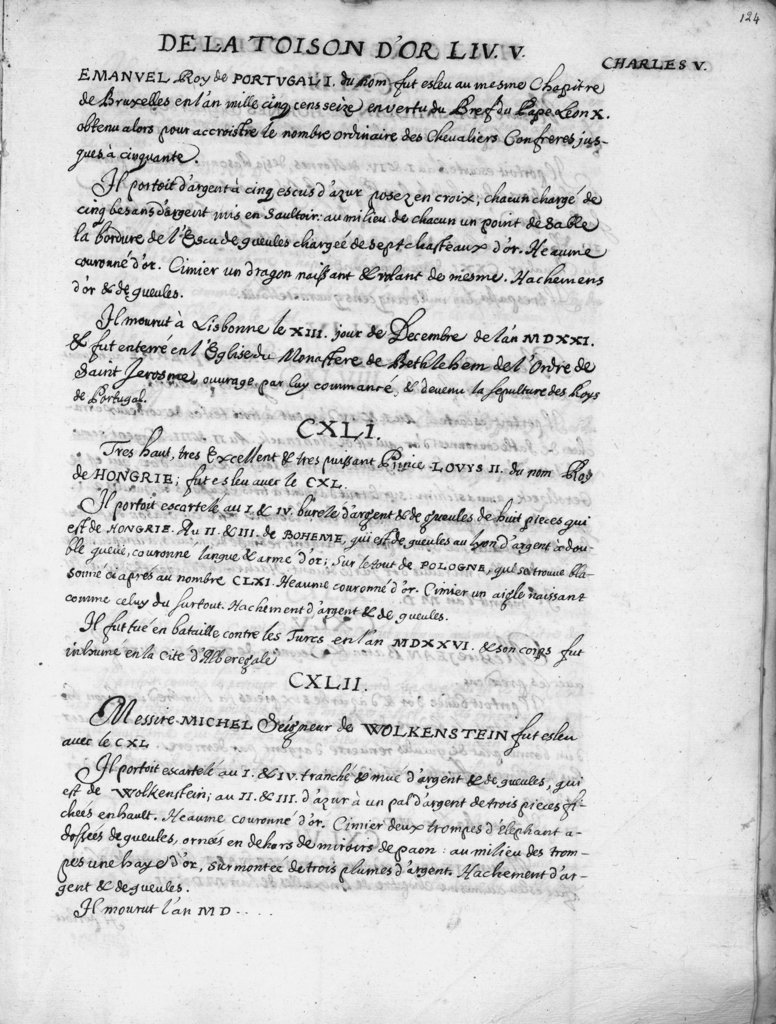 124
DE LA TOISON D'OR LIV. V.
CHARLES V.
EMANVEL Roy de PORTVGAL I. du nom fut esleu au mesme Chapitre
de Bruxelles en l'an mille cinq cens seize en vertu du Bref du Pape Leon X.
obtenu alors pour accroistre le nombre ordinaire des Chevaliers Confreres jus-
ques à cinquante.
Il portoit d'argent à cinq escus d'azur posez en croix, chacun chargé de
cinq besans d'argent mis en saultoir: au milieu de chacun un point de sable
la bordure de l'Escu de gueules chargée de sept chasteaux d'or. Heaume
couronné d'or. Cimier un dragon naissant & volant de mesme. Hachemens
d'or & de gueules.
Il mourut à Lisbonne le XIII. jour de Decembre de l'an MDXXI.
& fut enterré en l'Eglise du Monastere de Bethlehem de l'Ordre de
Saint Jerosme, ouvrage par luy commancé, & devenu la sepulture des Roys
de Portugal.
CXLI.
Tres haut, tres Excellent & tres puissant Prince LOVYS II. du nom Roy
de HONGRIE; fut esleu avec le CXL.
Il portoit escartelé au I. & IV. burelé d'argent & de gueules de huit pieces qui
est de HONGRIE. Au II. & III. de BOHEME, qui est de gueules au lyon d'argent à dou-
ble queüe, couronné langué & armé d'or; sur le tout de POLOGNE, qui se trouve bla-
sonné ci apres au nombre CLXI. Heaume couronné d'or. Cimier un aigle naissant
comme celuy du surtout. Hachement d'argent & de gueules.
Il fut tué en bataille contre les Turcs en l'an MDXXVI. & son corps fut
inhumé en la Cité d'Alberegale
CXLII.
Messire MICHEL Seigneur de WOLKENSTEIN fut esleu
avec le CXL
Il portoit escartelé au I. & IV. tranché & nué d'argent & de gueules, qui
est de Wolkenstein; au II. & III. d'azur à un pal d'argent de trois pieces fi-
chées en hault. Heaume couronné d'or. Cimier deux trompes d'elephant a-
dossées de gueules, ornées en dehors de miroirs de paon: au milieu des trom-
pes une haye d'or, surmontée de trois plumes d'argent. Hachement d'ar-
gent & de gueules.
Il mourut l'an MD....